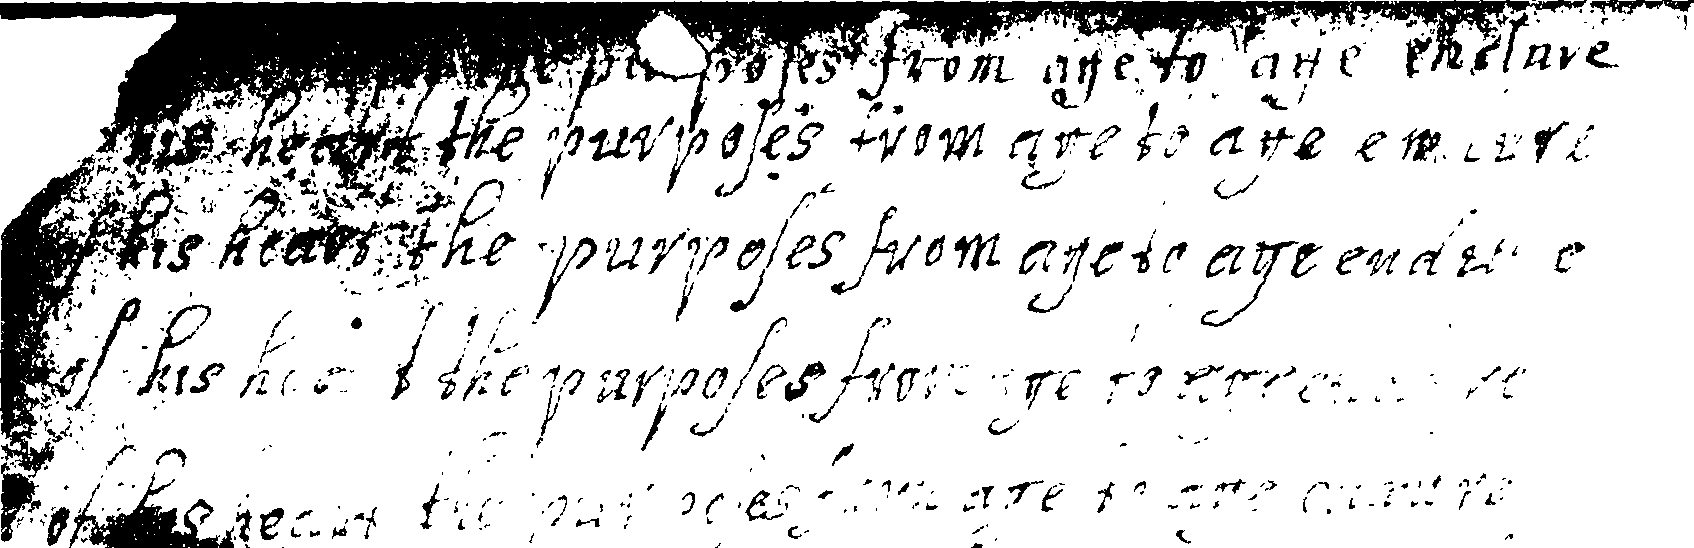 the purposes from age to age endure
his heart the purposes from age to age endure
of his heart the purposes from age to age endure
of his heart the purposes from age to age endure
of his heart the purposes from age to age endure